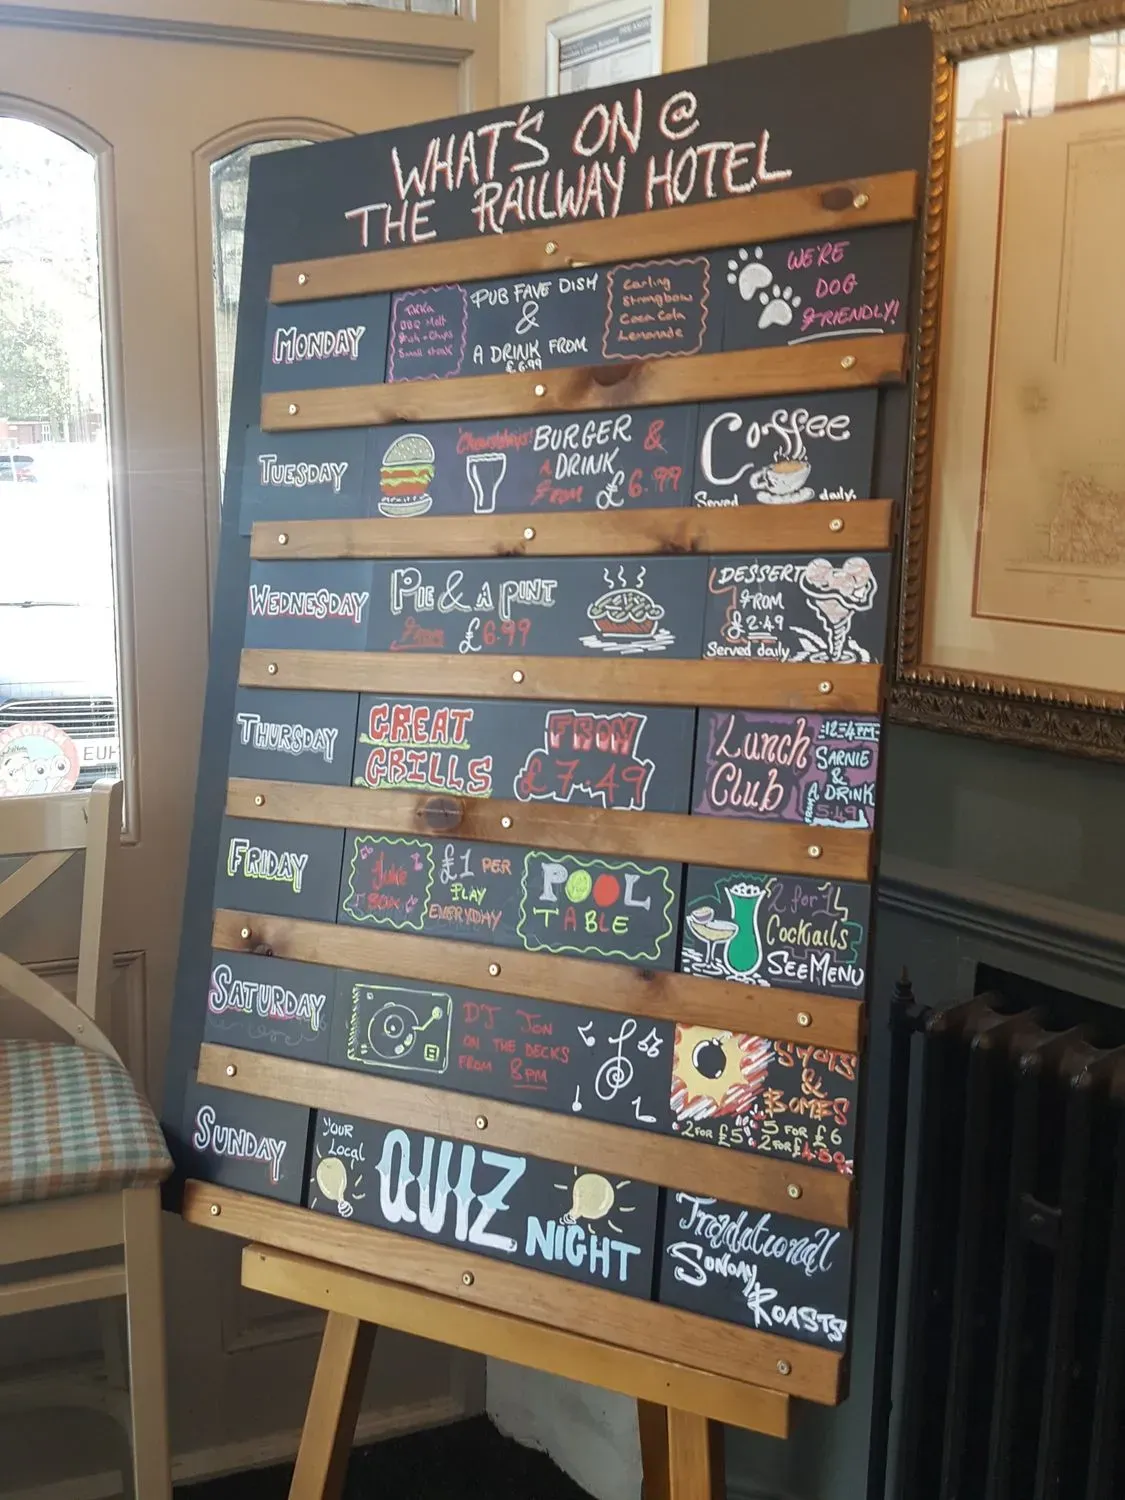 WHAT'S ON @
THE RAILWAY HOTEL
MONDAY
Tikka
BBQ Melt
Fish + Chips
Small steak
PUB FAVE DISH
&
A DRINK FROM
£6.99
Carling
Strongbow
Coca Cola
Lemonade
WE'RE
DOG
FRIENDLY!
TUESDAY
BURGER &
A DRINK
FROM £6.99
Coffee
Served daily.
WEDNESDAY
PIE & A PINT
FROM £6.99
DESSERT
FROM
£2.49
Served daily
THURSDAY
GREAT
GRILLS
FROM
£7.49
Lunch
Club
12-4PM
SARNIE
&
DRINK
FROM 5.49
FRIDAY
Juke
BOX
£1 PER
PLAY
EVERYDAY
POOL
TABLE
2 for 1
Cocktails
SEE MENU
SATURDAY
DJ JON
ON THE DECKS
FROM 8PM
SHOTS
&
BOMBS
2 FOR £5
5 FOR £6
SUNDAY
YOUR
Local
QUIZ
NIGHT
Traditional
SUNDAY
ROASTS